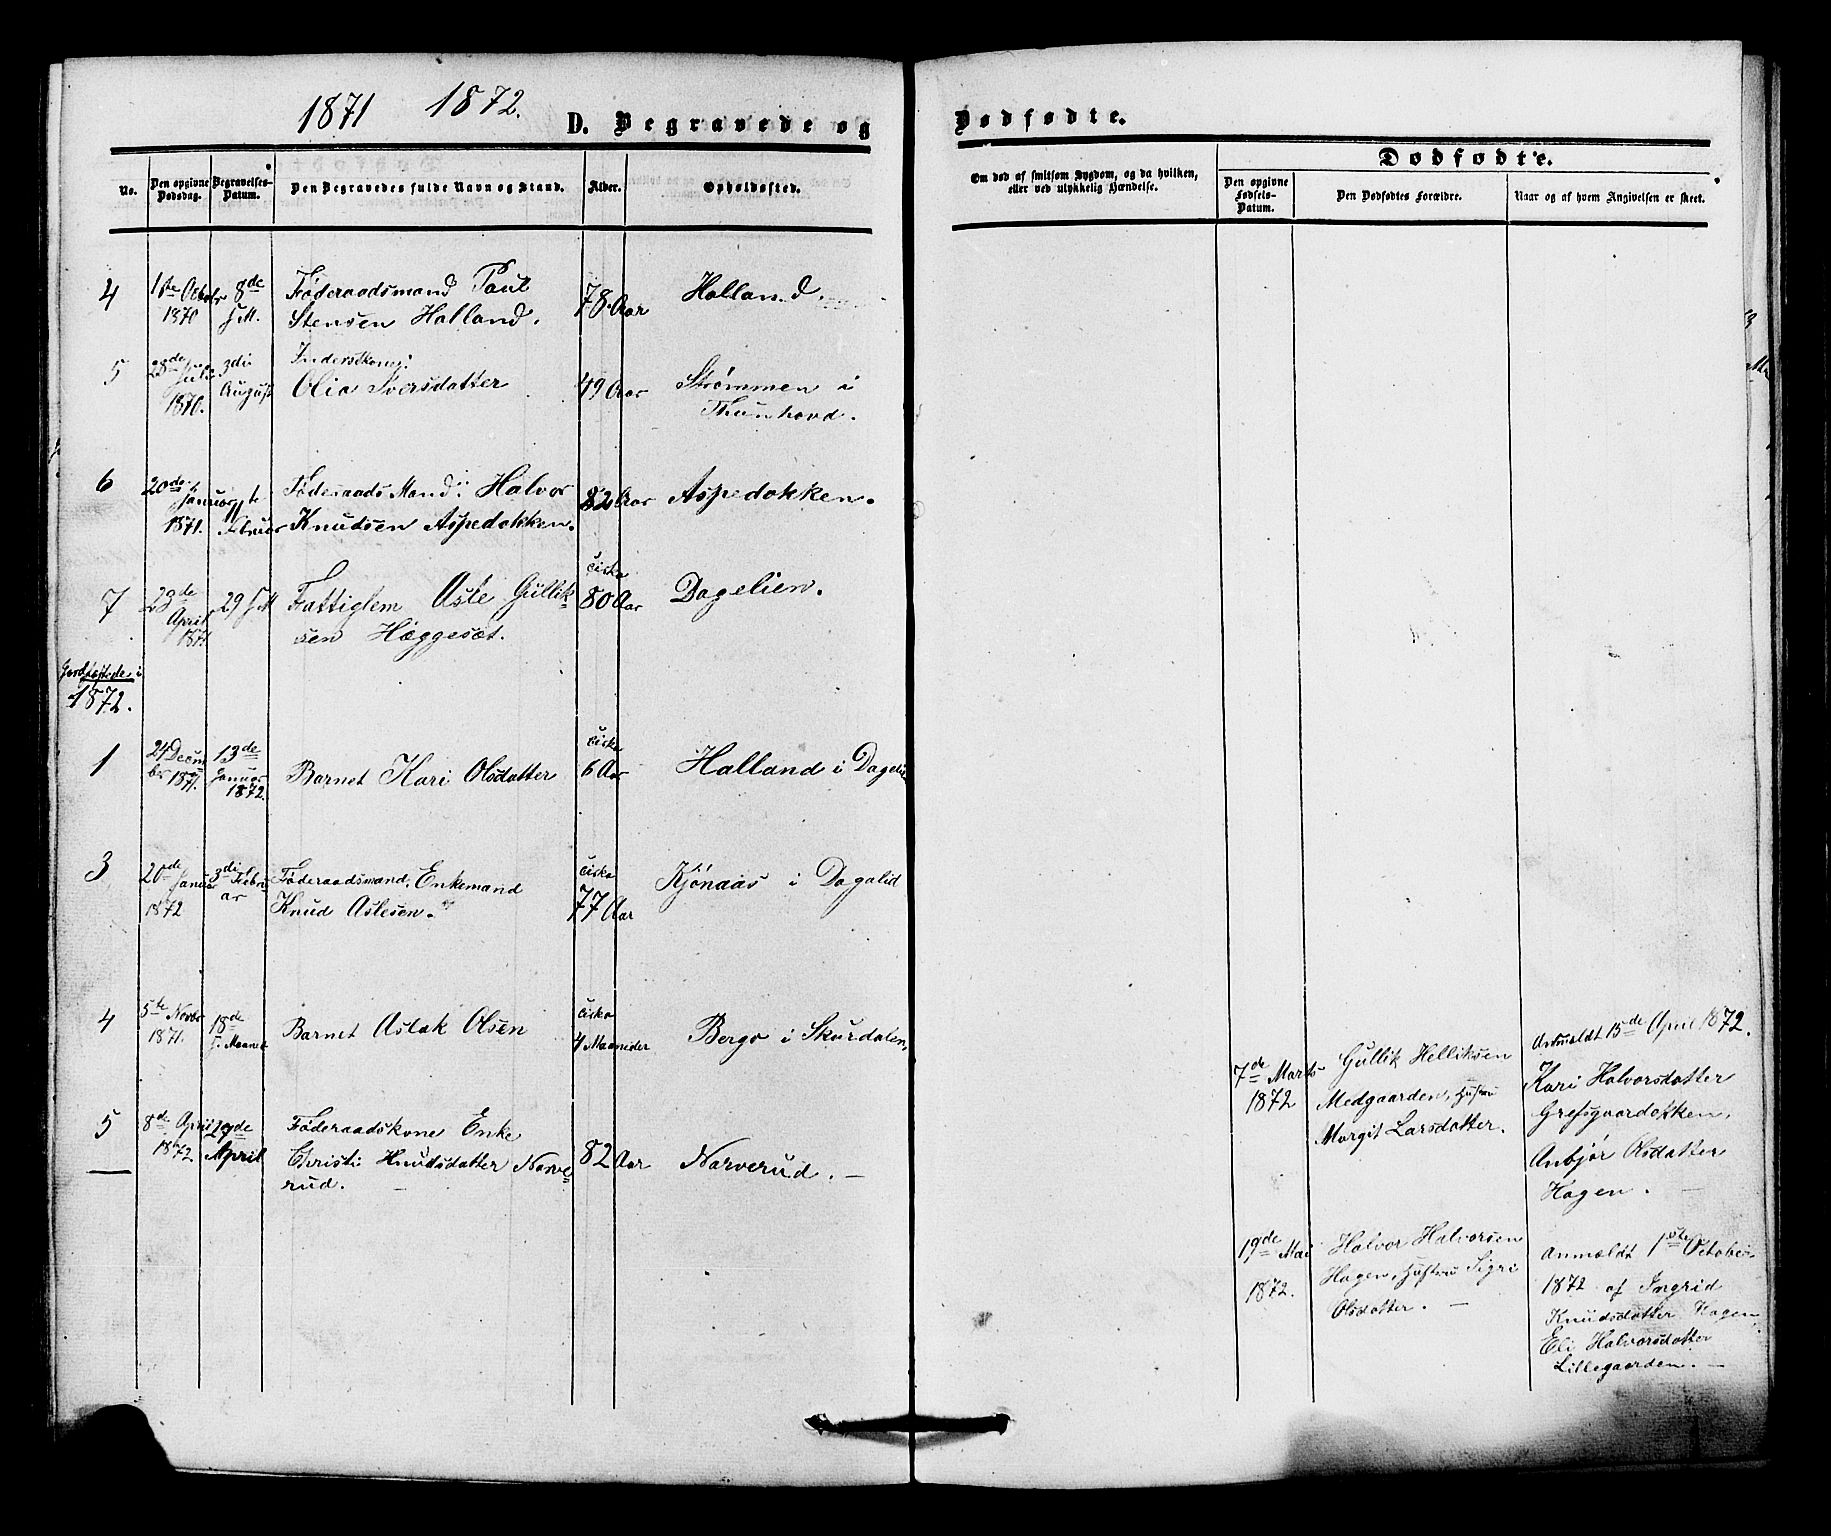 1871 1872.
D. Begravede og
No.
Den opgivne Dødsdag.
Begravelses-Datum.
Den Begravedes fulde Navn og Stand.
Alder.
Opholdssted.
4
1ste Octobr
1870
8de
s. M.
Føderaadsmand Paul
Stensen Halland.
78 Aar
Halland.
5
28de
Juli
1870.
3die
August
Inderstkone:
Olia Iversdatter
49 Aar
Strømmen i
Thunhovd.
6
20de
Januar
1871.
Februar
Føderaads Mand: Halvor
Knudsen Aspedokken.
82 Aar
Aspedokken.
7
23de
April
1871
29 s. M
Fattiglem Asle Gullik-
sen Hæggesæt.
cirka
80 Aar
Dagelien.
Jordfæstede i
1872.
1
24 Decem
ber
1871.
13de
Januar
1872.
Barnet Kari Olsdatter
cirka
6 Aar
Halland i Dagelien
3
20de
Januar
1872
3die
Febru-
ar
Føderaadsmand, Enkemand
Knud Aslesen.
cirka
77 Aar
Kjønaas i Dagalid
4
5te Novbr
1871.
18de
s. Maaned
Barnet Aslak Olsen
cirka
4 Maaneder
Bergo i Skurdalen,
5
8de April
1872
29de
April
Føderaadskone Enke
Christi Knudsdatter Narve-
rud.
82 Aar
Narverud.
Dødfødte.
Om død af smitsom Sygdom, og da hvilken,
eller ved ulykkelig Hændelse.
Dødfødte.
Den opgivne
Fødsels-
Datum.
Den Dødfødtes Forældre.
Naar og af hvem Angivelsen er skeet.
7de Marts
1872
Gullik Helliksen
Medgaarden, Hustru
Margit Larsdatter.
Anmeldt 15de April 1872.
Kari Halvorsdatter
Grefsgaardokken,
Anbjør Olsdatter
Hagen.
19de Mai
1872.
Halvor Halvorsen
Hagen, Hustru Sigri
Olsdatter.
Anmeldt 1ste October
1872 af Ingrid
Knudsdatter Hagen,
Eli Halvorsdatter
Lillegaarden.